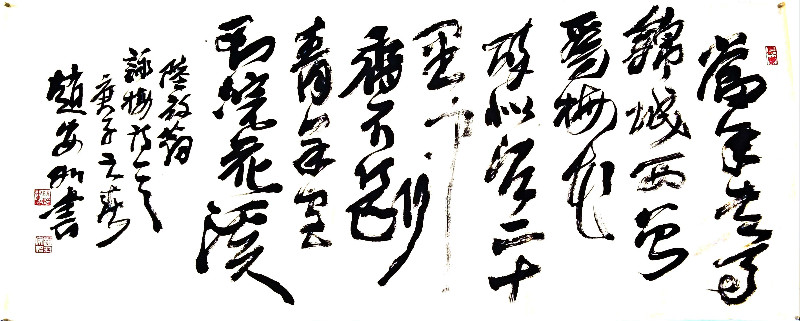 當年走馬
錦城西曾
為梅花
醉似泥二十
里中
香不斷
青羊宮
到浣花溪
陸放翁
詠梅詩
庚子之春
趙安書